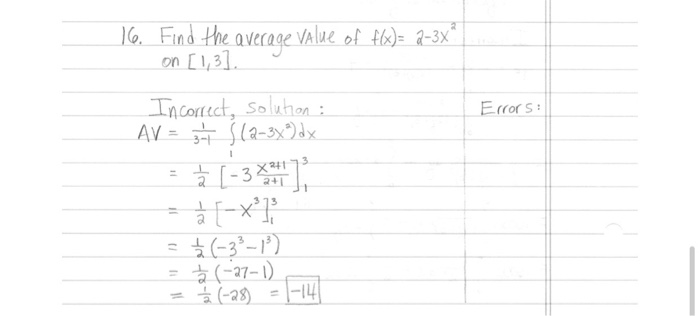 16. Find the average value of f(x)= 2-3x²
on [1,3].
Incorrect, solution :
Errors:
AV = 1/(3-1) ∫₁(2-3x²)dx
= 1/2 [-3 x²⁺¹/(2+1)]₁³
= 1/2 [-x³]₁³
= 1/2 (-3³-1³)
= 1/2 (-27-1)
= 1/2 (-28) = -14